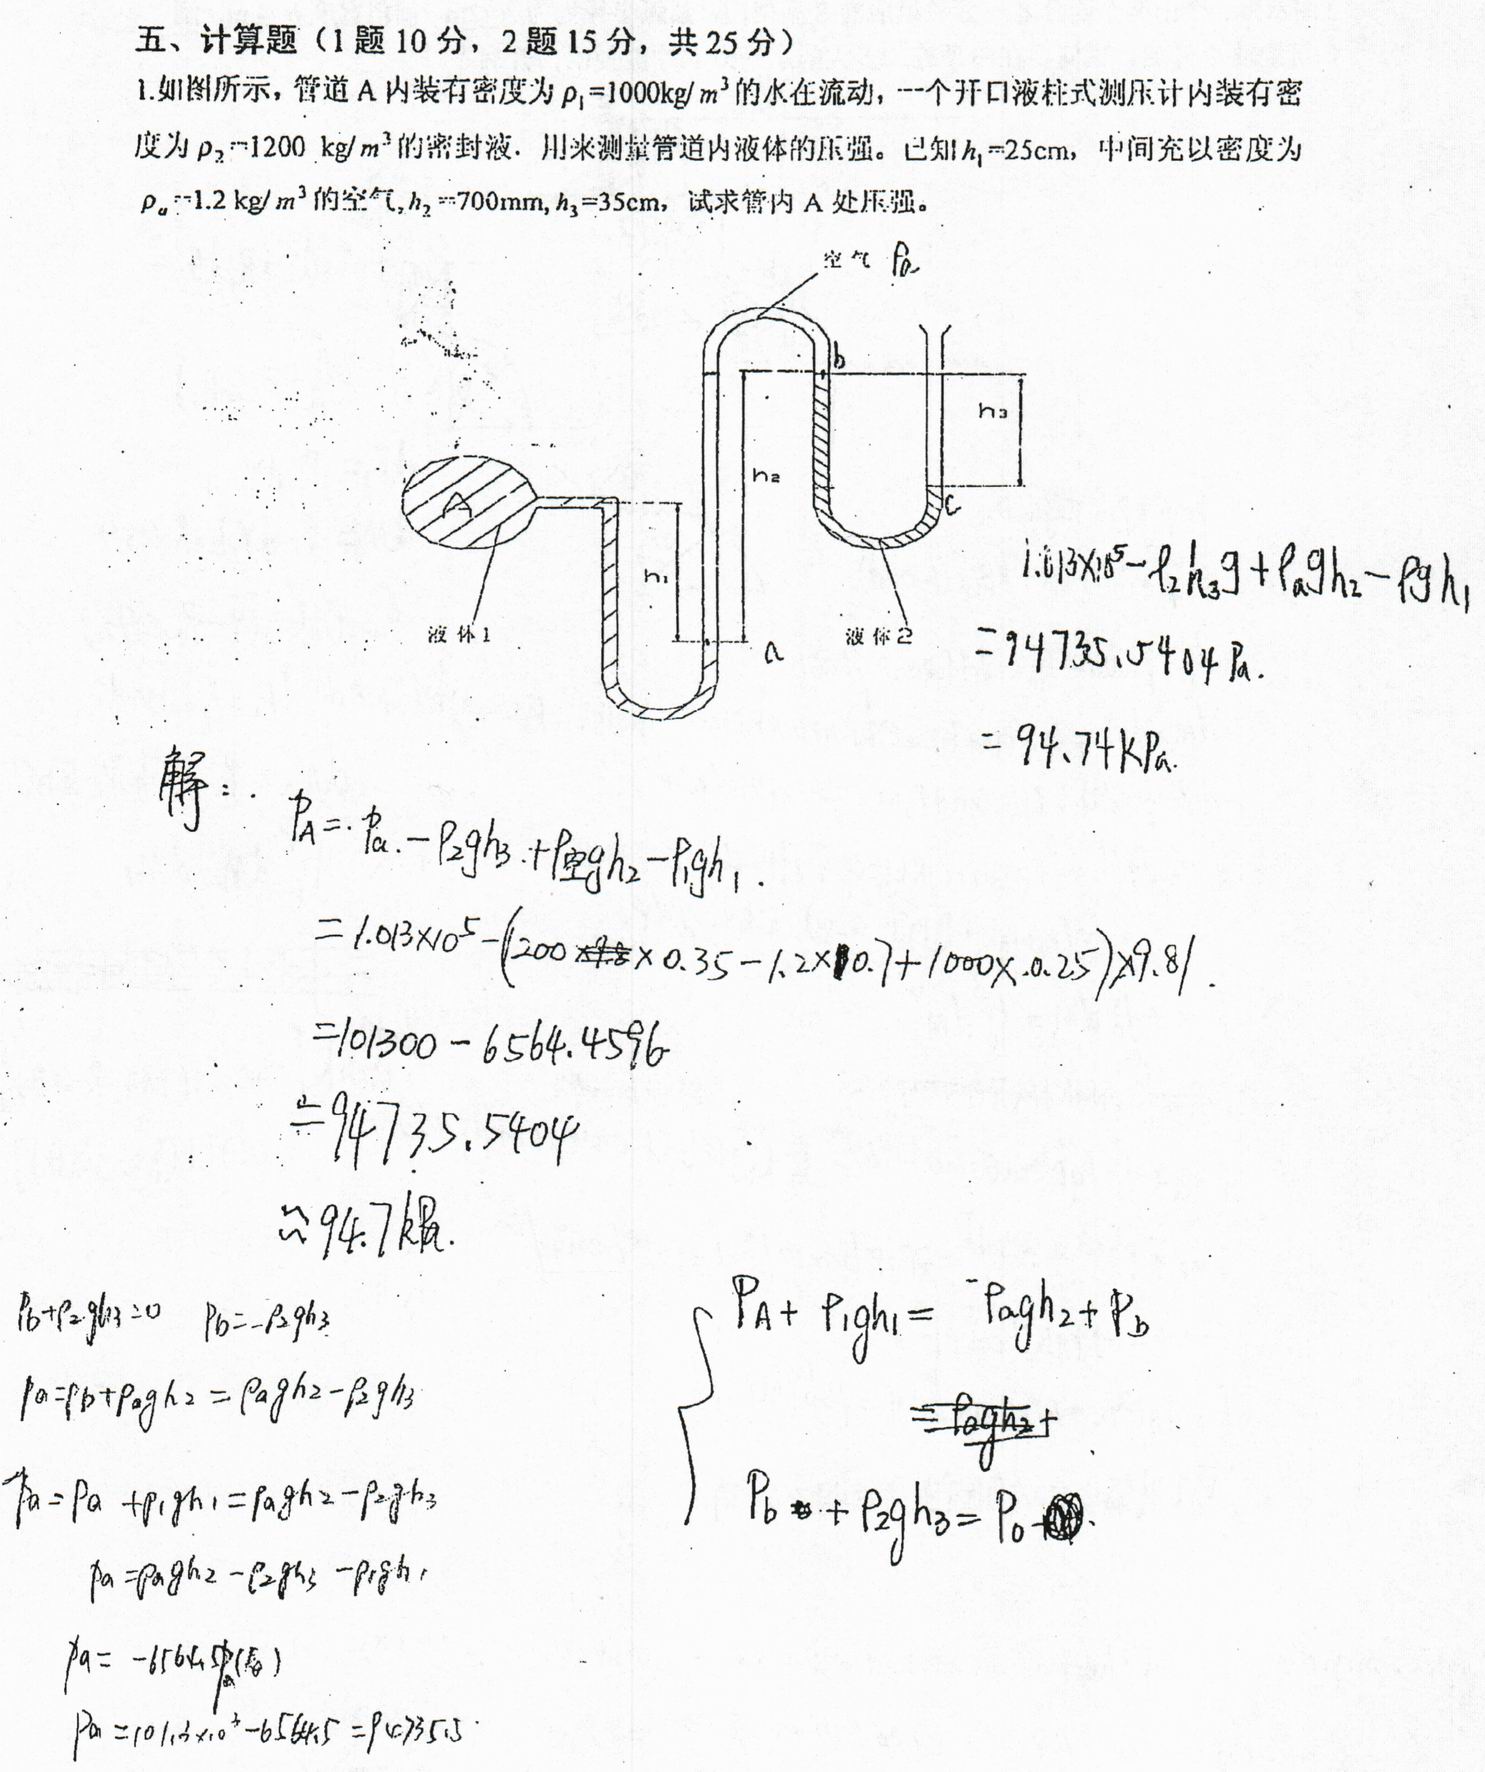 五、计算题（1题10分，2题15分，共25分）
1.如图所示，管道A内装有密度为ρ₁=1000kg/m³的水在流动，一个开口液柱式测压计内装有密
度为ρ₂=1200 kg/m³的密封液．用来测量管道内液体的压强。已知h₁=25cm，中间充以密度为
ρₐ=1.2 kg/m³的空气,h₂=700mm,h₃=35cm，试求管内A处压强。
空气 ρₐ
b
h₃
h₂
A
c
h₁
液体1
a
液体2
1.013×10⁵-ρ₂h₃g+ρₐgh₂-ρgh₁
=94735.5404Pa.
=94.74KPa.
解：
P_A=Pa-ρ₂gh₃+ρ空gh₂-ρ₁gh₁.
=1.013×10⁵-(1200×0.35-1.2×0.7+1000×0.25)×9.81.
=101300-6564.4596
=94735.5404
≈94.7kPa.
P_b+ρ₂gh₃=0 P_b=-ρ₂gh₃
Pa=Pb+ρₐgh₂=ρₐgh₂-ρ₂gh₃
Pa=Pa+ρ₁gh₁=ρₐgh₂-ρ₂gh₃
Pa=ρₐgh₂-ρ₂gh₃-ρ₁gh₁
Pa=-6564.5Pa
Pa=101.3×10³-6564.5=94735.5
P_A+ρ₁gh₁=ρₐgh₂+P_b
=ρₐgh₂+
P_b+ρ₂gh₃=P₀